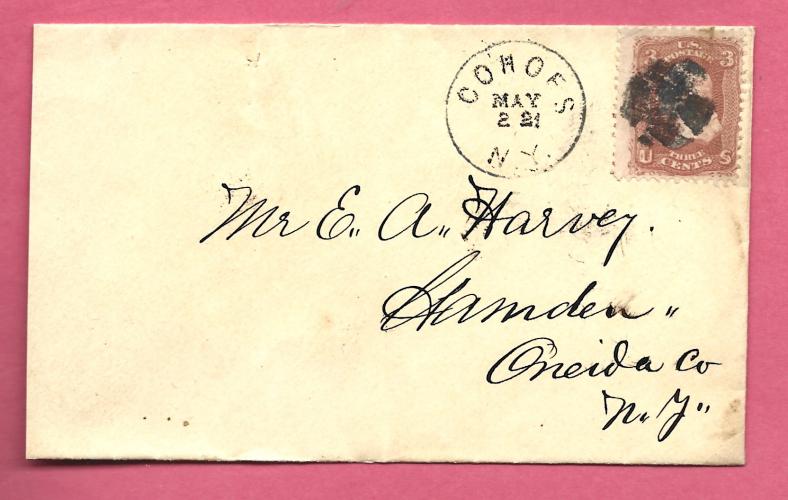 COHOES
MAY
2 21
N.Y.
3 U.S. 3
POSTAGE
U THREE S
CENTS
Mr E. A. Harvey.
Hamden
Oneida Co
N.Y.